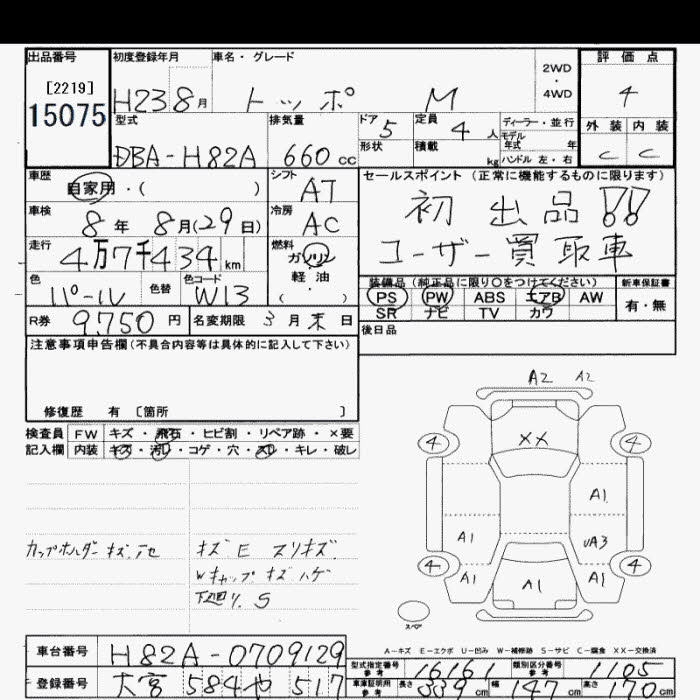 出品番号 初度登録年月 車名・グレード 2WD・4WD 評価点
[2219]
15075
H23 8月 トッポ M 4
型式 排気量 ドア 5 定員 4人 ディーラー・並行 外装 内装
モデル年式 年
DBA-H82A 660cc 形状 積載 kg ハンドル 左・右 C C
車歴 自家用・( ) シフト AT セールスポイント (正常に機能するものに限ります)
車検 8年 8月(29日) 冷房 AC 初出品!!
走行 4万7千434km 燃料 ガソリン 軽油 ( ) ユーザー買取車
色 パール 色替 色コード W13 装備品 (純正品に限り○をつけてください) 新車保証書
PS PW ABS エアB AW 有・無
SR ナビ TV カワ
R券 9,750円 名変期限 3月末日 後日品
注意事項申告欄(不具合内容等は具体的に記入して下さい)
修復歴 有 〔箇所 〕
検査員 FW キズ・飛石・ヒビ割・リペア跡・×要
記入欄 内装 キズ・汚レ・コゲ・穴・スレ・キレ・破レ
A2 A2
4 XX 4
A1
A1 UA3
4 4
A1 A1 A1
スペア
カップホルダーキズ、他 キズE スリキズ
Wキャップキズハゲ
下廻り、S
A-キズ E-エクボ U-凹み W-補修跡 S-サビ C-腐食 XX-交換済
車台番号 H82A-0709129
登録番号 大宮 584 や 517
型式指定番号 参考 16161 類別区分番号 参考 1105
車庫証明用 参考 長さ 339cm 幅 147cm 高さ 170cm